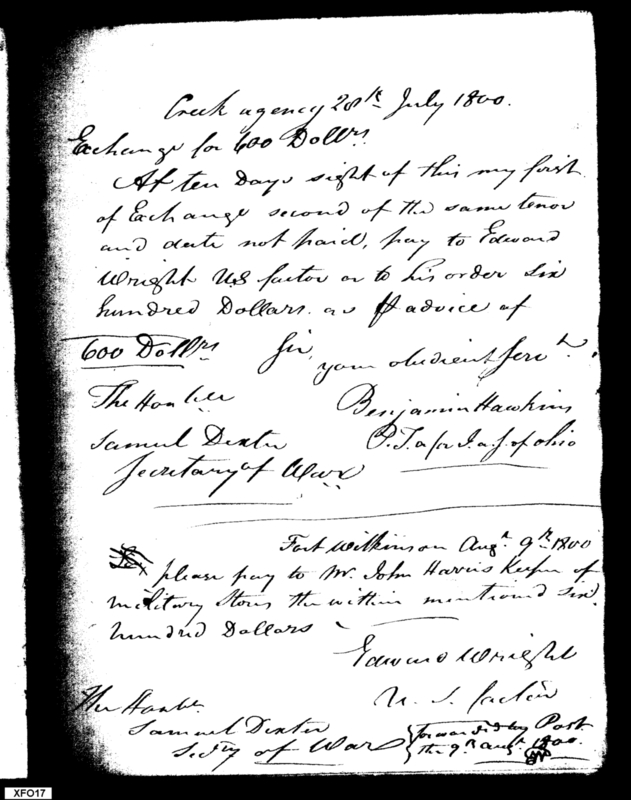 Creek agency 28th July 1800.
Exchange for 600 Dollrs
At ten Days sight of this my first
of Exchange second of the same tenor
and date not paid, pay to Edward
Wright US factor or to his order six
hundred Dollars. as advice of
600 Dollrs Sir,
your obedient Servt.
The Honble
Benjamin Hawkins
Samuel Dexter
P. T. a for I. a. S. of Ohio
Secretary of War
Fort Wilkinson Augt 9th 1800
please pay to Mr. John Harris Keeper of
military Stores the within mentiond six
hundred Dollars
Edward Wright
U. S. factor
The Honble.
Samuel Dexter
Secry of War
forwarded by Post
the 9th augt. 1800.
XFO17